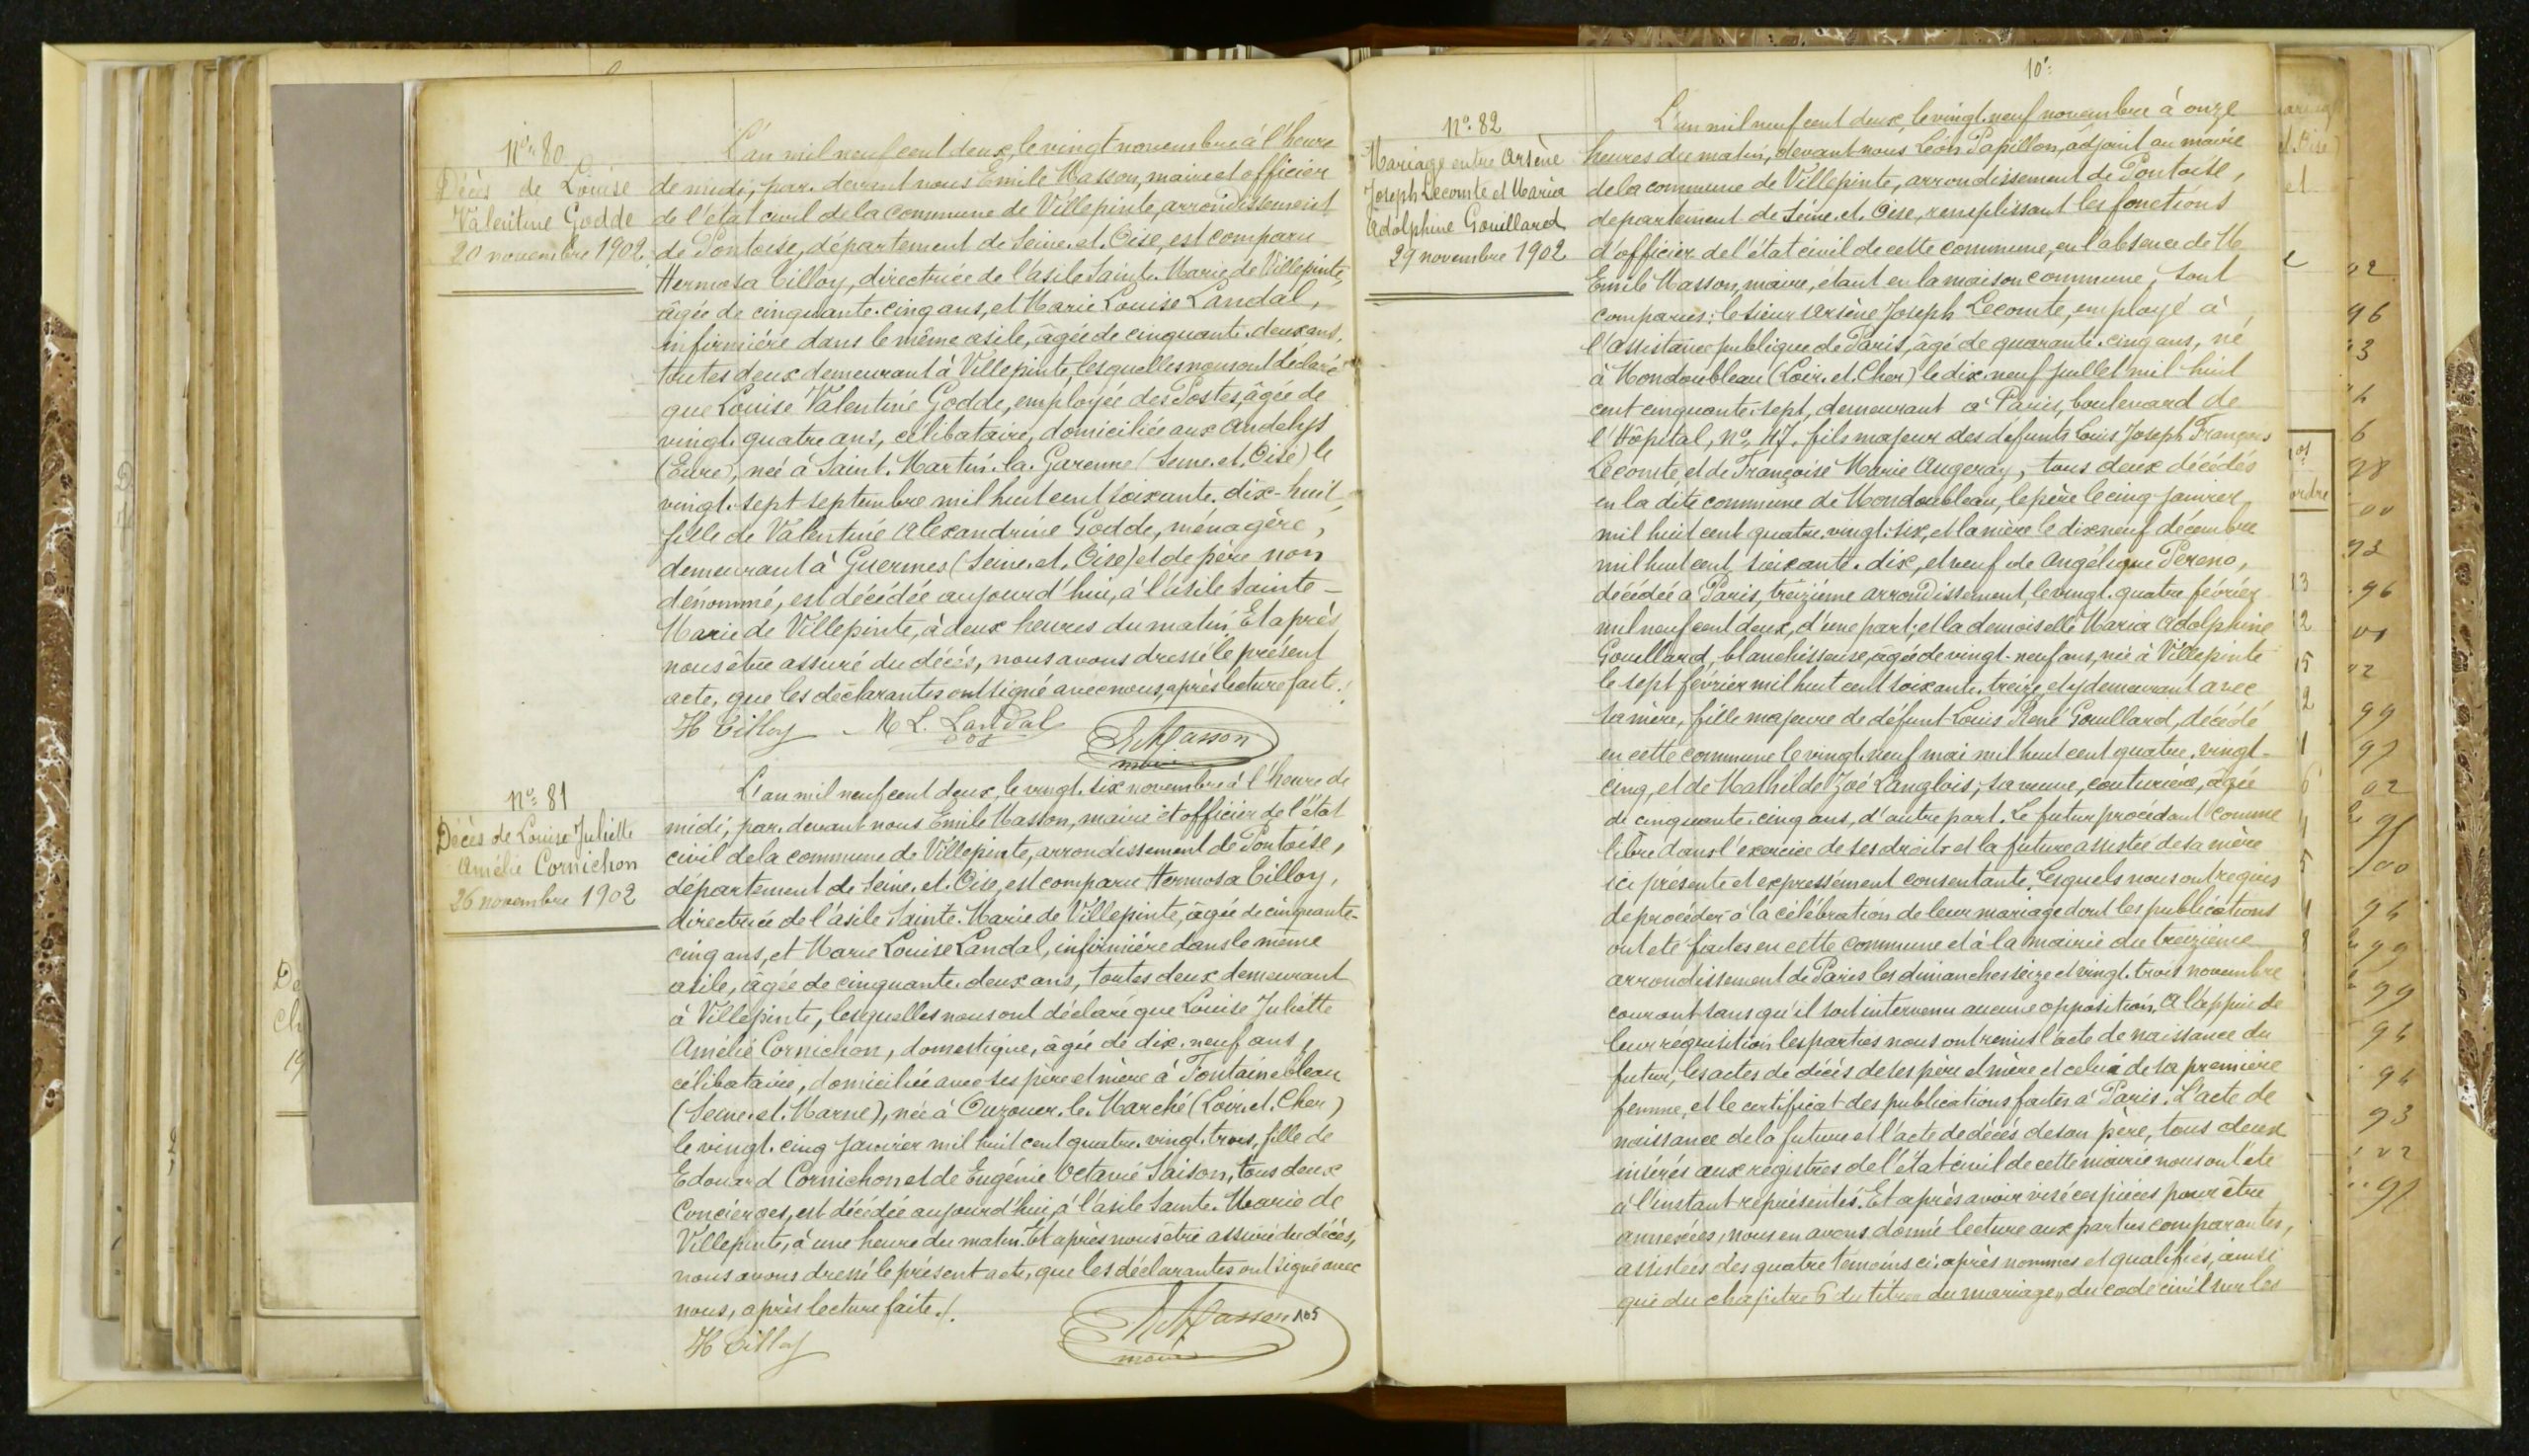 Nº 80
Décès de Louise
Valentine Godde
20 novembre 1902.
L'an mil neuf cent deux, le vingt novembre à l'heure
de midi, par-devant nous Emile Masson, maire et officier
de l'état civil de la commune de Villepinte, arrondissement
de Pontoise, département de Seine-et-Oise, est comparu
Hermosa Tilloy, directrice de l'asile Sainte-Marie de Villepinte,
âgée de cinquante-cinq ans, et Marie Louise Landal,
infirmière dans le même asile, âgée de cinquante-deux ans,
toutes deux demeurant à Villepinte, lesquelles nous ont déclaré
que Louise Valentine Godde, employée des Postes, âgée de
vingt-quatre ans, célibataire, domiciliée aux Andelys
(Eure), née à Saint-Martin-la-Garenne (Seine-et-Oise) le
vingt-sept septembre mil huit cent soixante-dix-huit,
fille de Valentine Alexandrine Godde, ménagère,
demeurant à Guermes (Seine-et-Oise) et de père non
dénommé, est décédée aujourd'hui, à l'asile Sainte-
Marie de Villepinte, à deux heures du matin. Et après
nous être assuré du décès, nous avons dressé le présent
acte, que les déclarantes ont signé avec nous, après lecture faite./.
H Tilloy - M L. Landal E. Masson
maire
Nº 81
Décès de Louise Juliette
Amélie Cornichon
26 novembre 1902
L'an mil neuf cent deux, le vingt-six novembre à l'heure de
midi, par-devant nous Emile Masson, maire et officier de l'état
civil de la commune de Villepinte, arrondissement de Pontoise,
département de Seine-et-Oise, est comparu Hermosa Tilloy,
directrice de l'asile Sainte-Marie de Villepinte, âgée de cinquante-
cinq ans, et Marie Louise Landal, infirmière dans le même
asile, âgée de cinquante-deux ans, toutes deux demeurant
à Villepinte, lesquelles nous ont déclaré que Louise Juliette
Amélie Cornichon, domestique, âgée de dix-neuf ans,
célibataire, domiciliée avec ses père et mère à Fontainebleau
(Seine-et-Marne), née à Ouzouer-le-Marché (Loir-et-Cher)
le vingt-cinq janvier mil huit cent quatre-vingt-trois, fille de
Edouard Cornichon et de Eugénie Octavie Saison, tous deux
Concierges, est décédée aujourd'hui, à l'asile Sainte-Marie de
Villepinte, à une heure du matin. Et après nous être assuré du décès,
nous avons dressé le présent acte, que les déclarantes ont signé avec
nous, après lecture faite./.
H Tilloy E. Masson 105
maire
10
Nº 82
Mariage entre Arsène
Joseph Lecomte et Maria
Adolphine Gouillard
29 novembre 1902
L'an mil neuf cent deux, le vingt-neuf novembre à onze
heures du matin, devant nous Léon Papillon, adjoint au maire
de la commune de Villepinte, arrondissement de Pontoise,
département de Seine-et-Oise, remplissant les fonctions
d'officier de l'état civil de cette commune, en l'absence de M.
Emile Masson, maire, étant en la maison commune, sont
comparus: le sieur Arsène Joseph Lecomte, employé à
l'assistance publique de Paris, âgé de quarante-cinq ans, né
à Mondoubleau (Loir-et-Cher) le dix-neuf juillet mil huit
cent cinquante-sept, demeurant à Paris, boulevard de
l'Hôpital, nº 47, fils majeur des défunts Louis Joseph François
Lecomte, et de Françoise Marie Augeray, tous deux décédés
en la dite commune de Mondoubleau, le père le cinq janvier
mil huit cent quatre-vingt-six, et la mère le dix neuf décembre
mil huit cent soixante-dix, et veuf de Angélique Pereno,
décédée à Paris, treizième arrondissement, le vingt-quatre février
mil neuf cent deux, d'une part; et la demoiselle Maria Adolphine
Gouillard, blanchisseuse, âgée de vingt-neuf ans, née à Villepinte
le sept février mil huit cent soixante-treize, et y demeurant avec
sa mère, fille majeure de défunt Louis René Gouillard, décédé
en cette commune le vingt-neuf mai mil huit cent quatre-vingt-
cinq, et de Mathilde Zoé Langlois, sa veuve, couturière, âgée
de cinquante-cinq ans, d'autre part. Le futur procédant comme
libre dans l'exercice de ses droits et la future assistée de sa mère
ici présente et expressément consentante. Lesquels nous ont requis
de procéder à la célébration de leur mariage dont les publications
ont été faites en cette commune et à la mairie du treizième
arrondissement de Paris les dimanches seize et vingt-trois novembre
courant sans qu'il soit intervenu aucune opposition. A l'appui de
leur réquisition les parties nous ont remis l'acte de naissance du
futur, les actes de décès de ses père et mère et celui de sa première
femme, et le certificat des publications faites à Paris. L'acte de
naissance de la future et l'acte de décès de son père, tous deux
insérés aux registres de l'état civil de cette mairie nous ont été
à l'instant représentés. Et après avoir visé ces pièces pour être
annexées, nous en avons donné lecture aux parties comparantes,
assistées des quatre témoins ci-après nommés et qualifiés, ainsi
que du chapitre 6 du titre „du mariage„ du code civil sur les